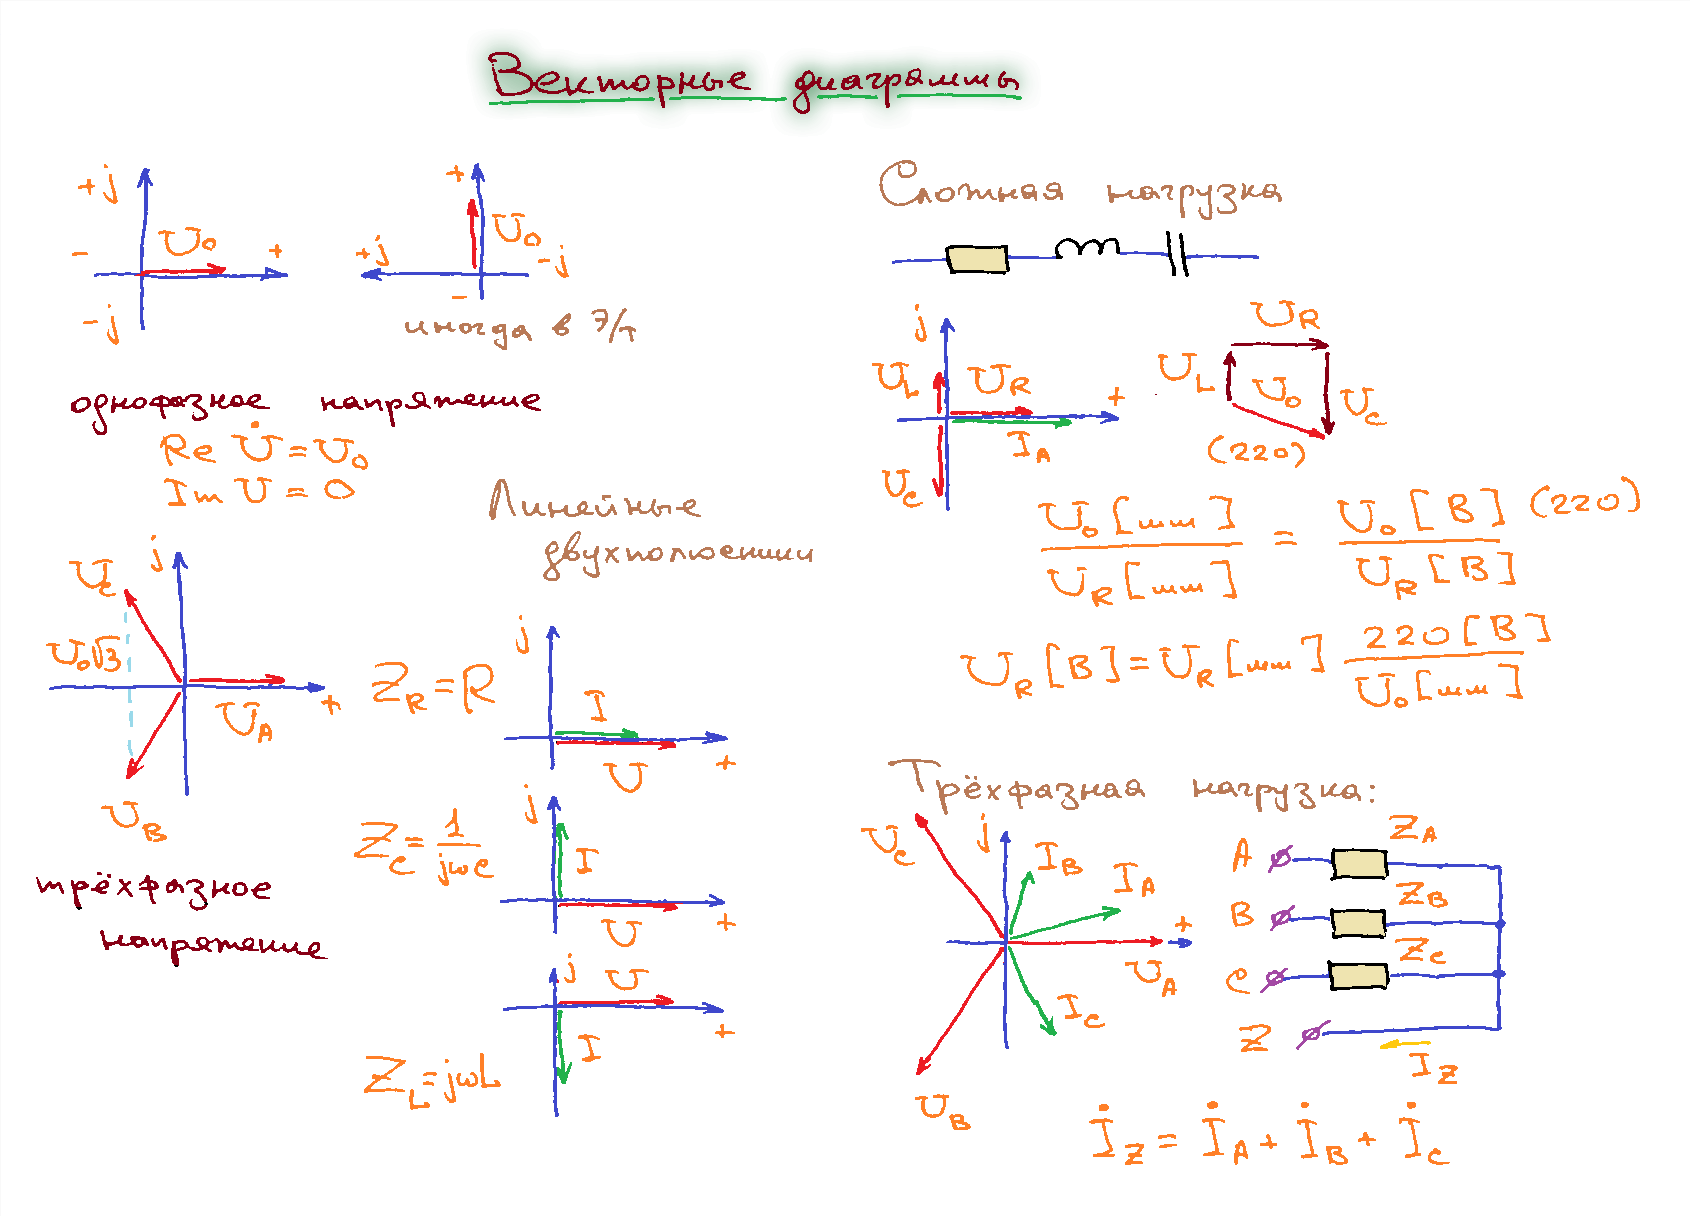 Векторные диаграммы
+j
U₀
-
+
-j
+
U₀
+j
-j
-
иногда в э/т
однофазное напряжение
Re U̇ = U₀
Im U = 0
j
U_C
U₀√3
+
U_A
U_B
трёхфазное
напряжение
Линейные
двухполюсники
Z_R = R
j
I
U
+
Z_C = 1/jωC
j
I
U
+
Z_L = jωL
j
U
I
+
Сложная нагрузка
j
U_L
U_R
+
I_A
U_C
U_R
U_L
U₀
U_C
(220)
U₀ [мм] / U_R [мм] = U₀ [В] (220) / U_R [В]
U_R [В] = U_R [мм] 220 [В] / U₀ [мм]
Трёхфазная нагрузка:
U_C
j
I_B
I_A
+
U_A
I_C
U_B
Z_A
A
Z_B
B
Z_C
C
Z
I_Z
İ_Z = İ_A + İ_B + İ_C